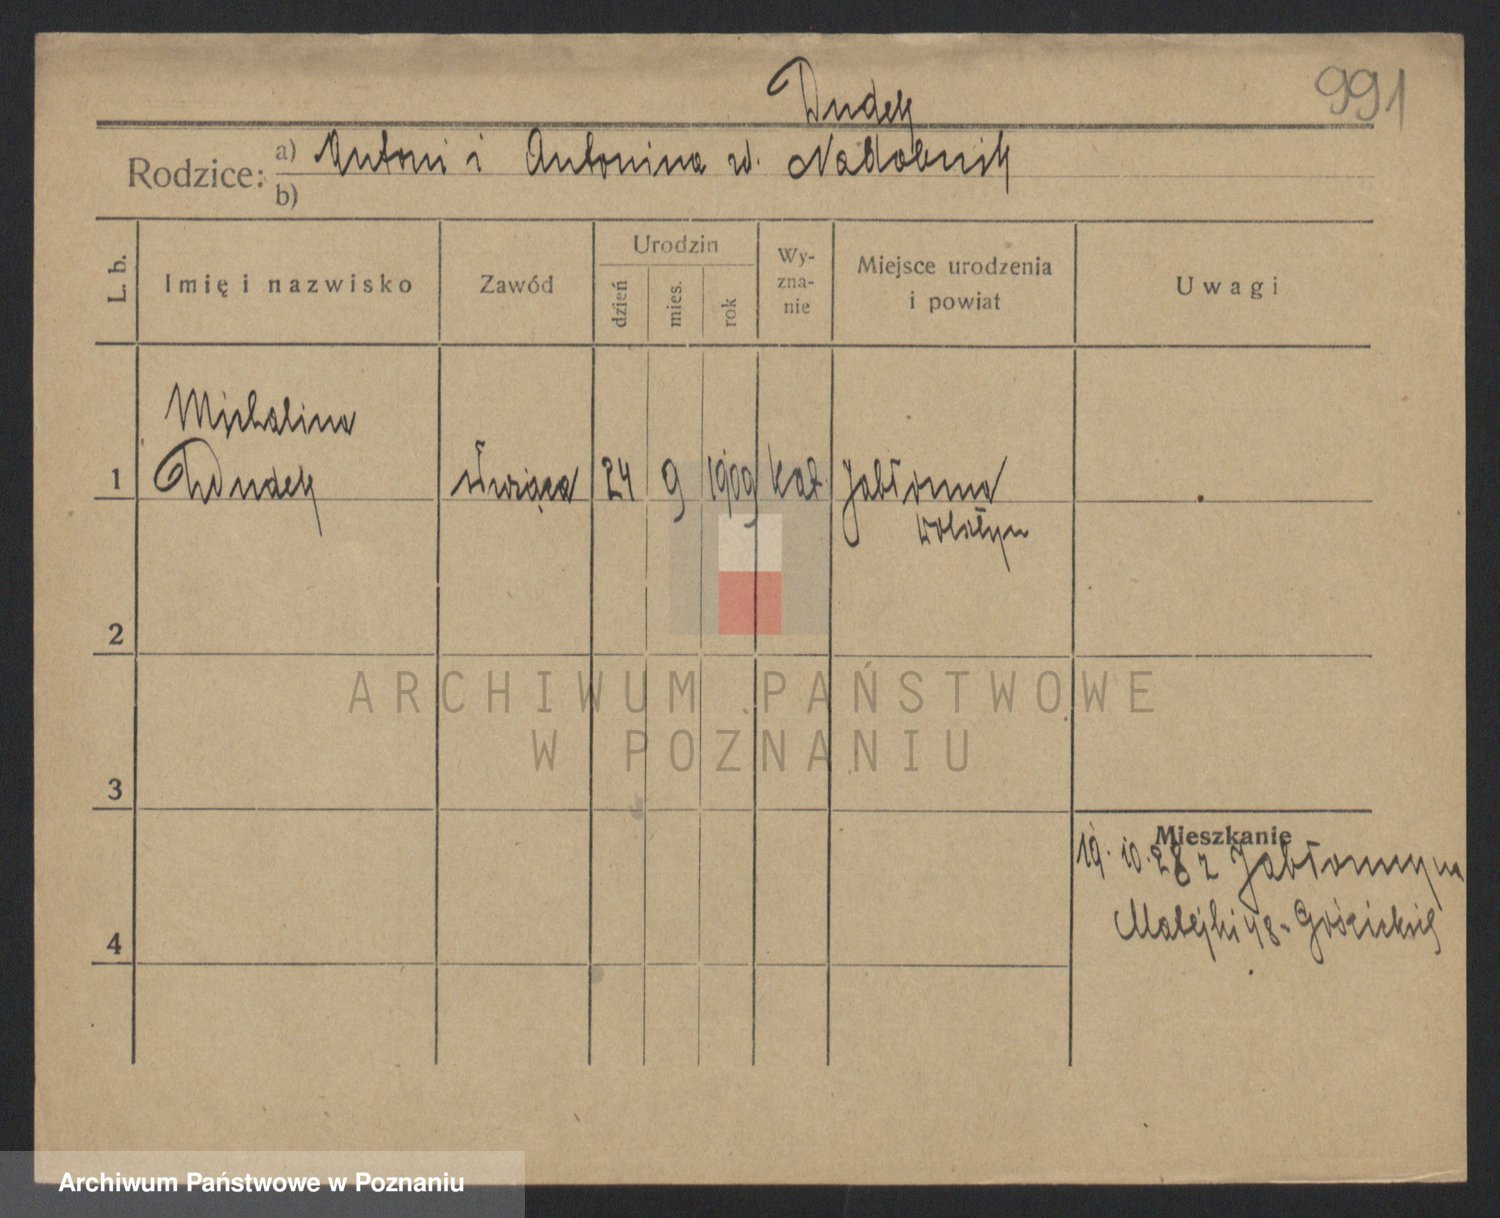 991
Dudek
Rodzice: a) Antoni i Antonina w. Nadobnik
b)
L. b. Imię i nazwisko Zawód Urodzin dzień mies. rok Wy-zna-nie Miejsce urodzenia i powiat Uwagi
Michalina
1 Dudek służąca 24 9 1909 kat Jabłonna
Wolsztyn
2
ARCHIWUM PAŃSTWOWE
W POZNANIU
3
Mieszkanie
19. 10. 28 z Jabłonny na
Matejki 48
4
Archiwum Państwowe w Poznaniu